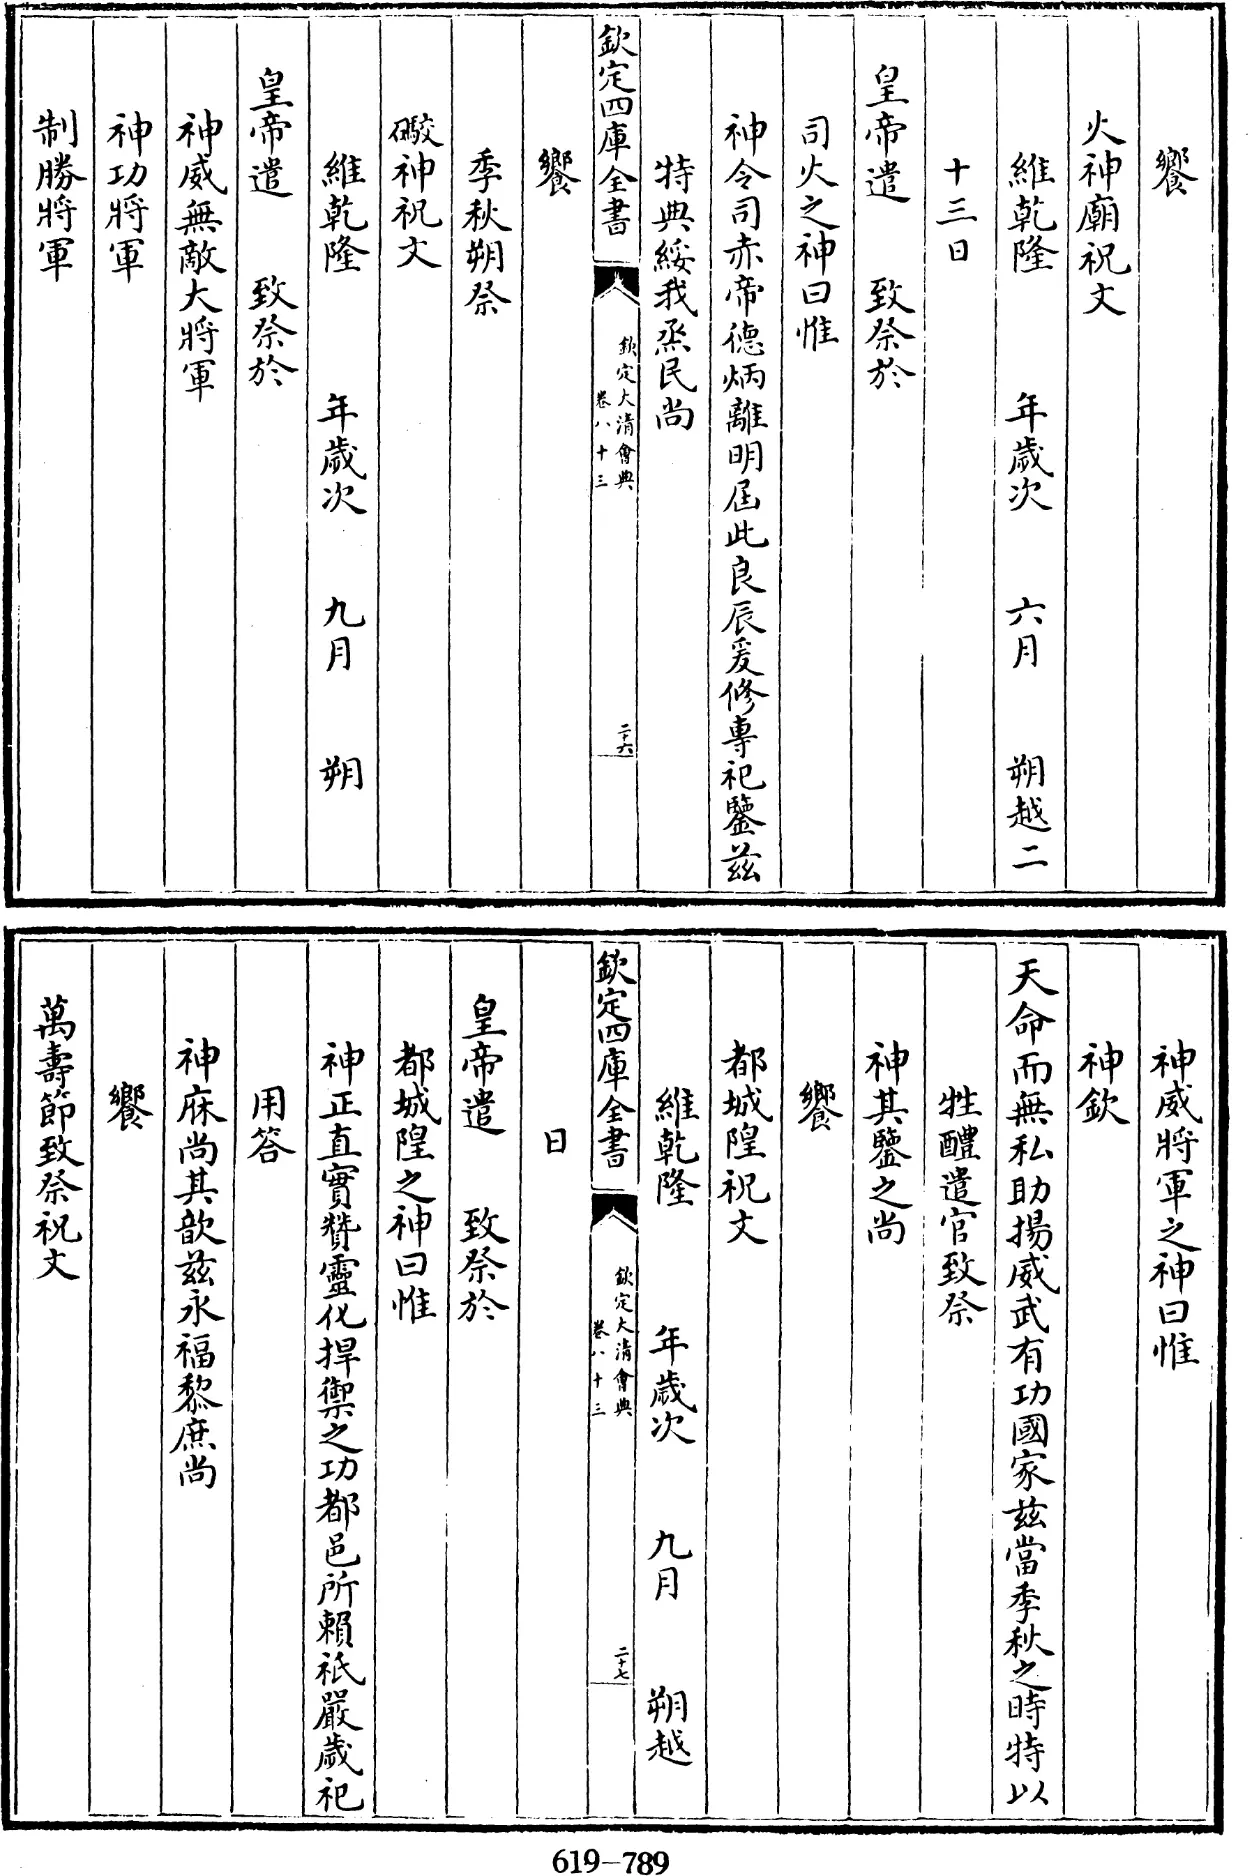 饗
火神廟祝文
維乾隆　年歲次　六月　朔越二
十三日
皇帝遣　致祭於
司火之神曰惟
神令司赤帝德炳離明屆此良辰爰修專祀鑒兹
特典綏我烝民尚
欽定四庫全書
欽定大清會典
卷八十三
二十六
饗
季秋朔祭
礮神祝文
維乾隆　年歲次　九月　朔
皇帝遣　致祭於
神威無敵大將軍
神功將軍
制勝將軍
神威將軍之神曰惟
神欽
天命而無私助揚威武有功國家兹當季秋之時特以
牲醴遣官致祭
神其鑒之尚
饗
都城隍祝文
維乾隆　年歲次　九月　朔越
欽定四庫全書
欽定大清會典
卷八十三
二十七
日
皇帝遣　致祭於
都城隍之神曰惟
神正直實贊靈化捍禦之功都邑所賴祇嚴歲祀
用答
神庥尚其歆兹永福黎庶尚
饗
萬壽節致祭祝文
619-789